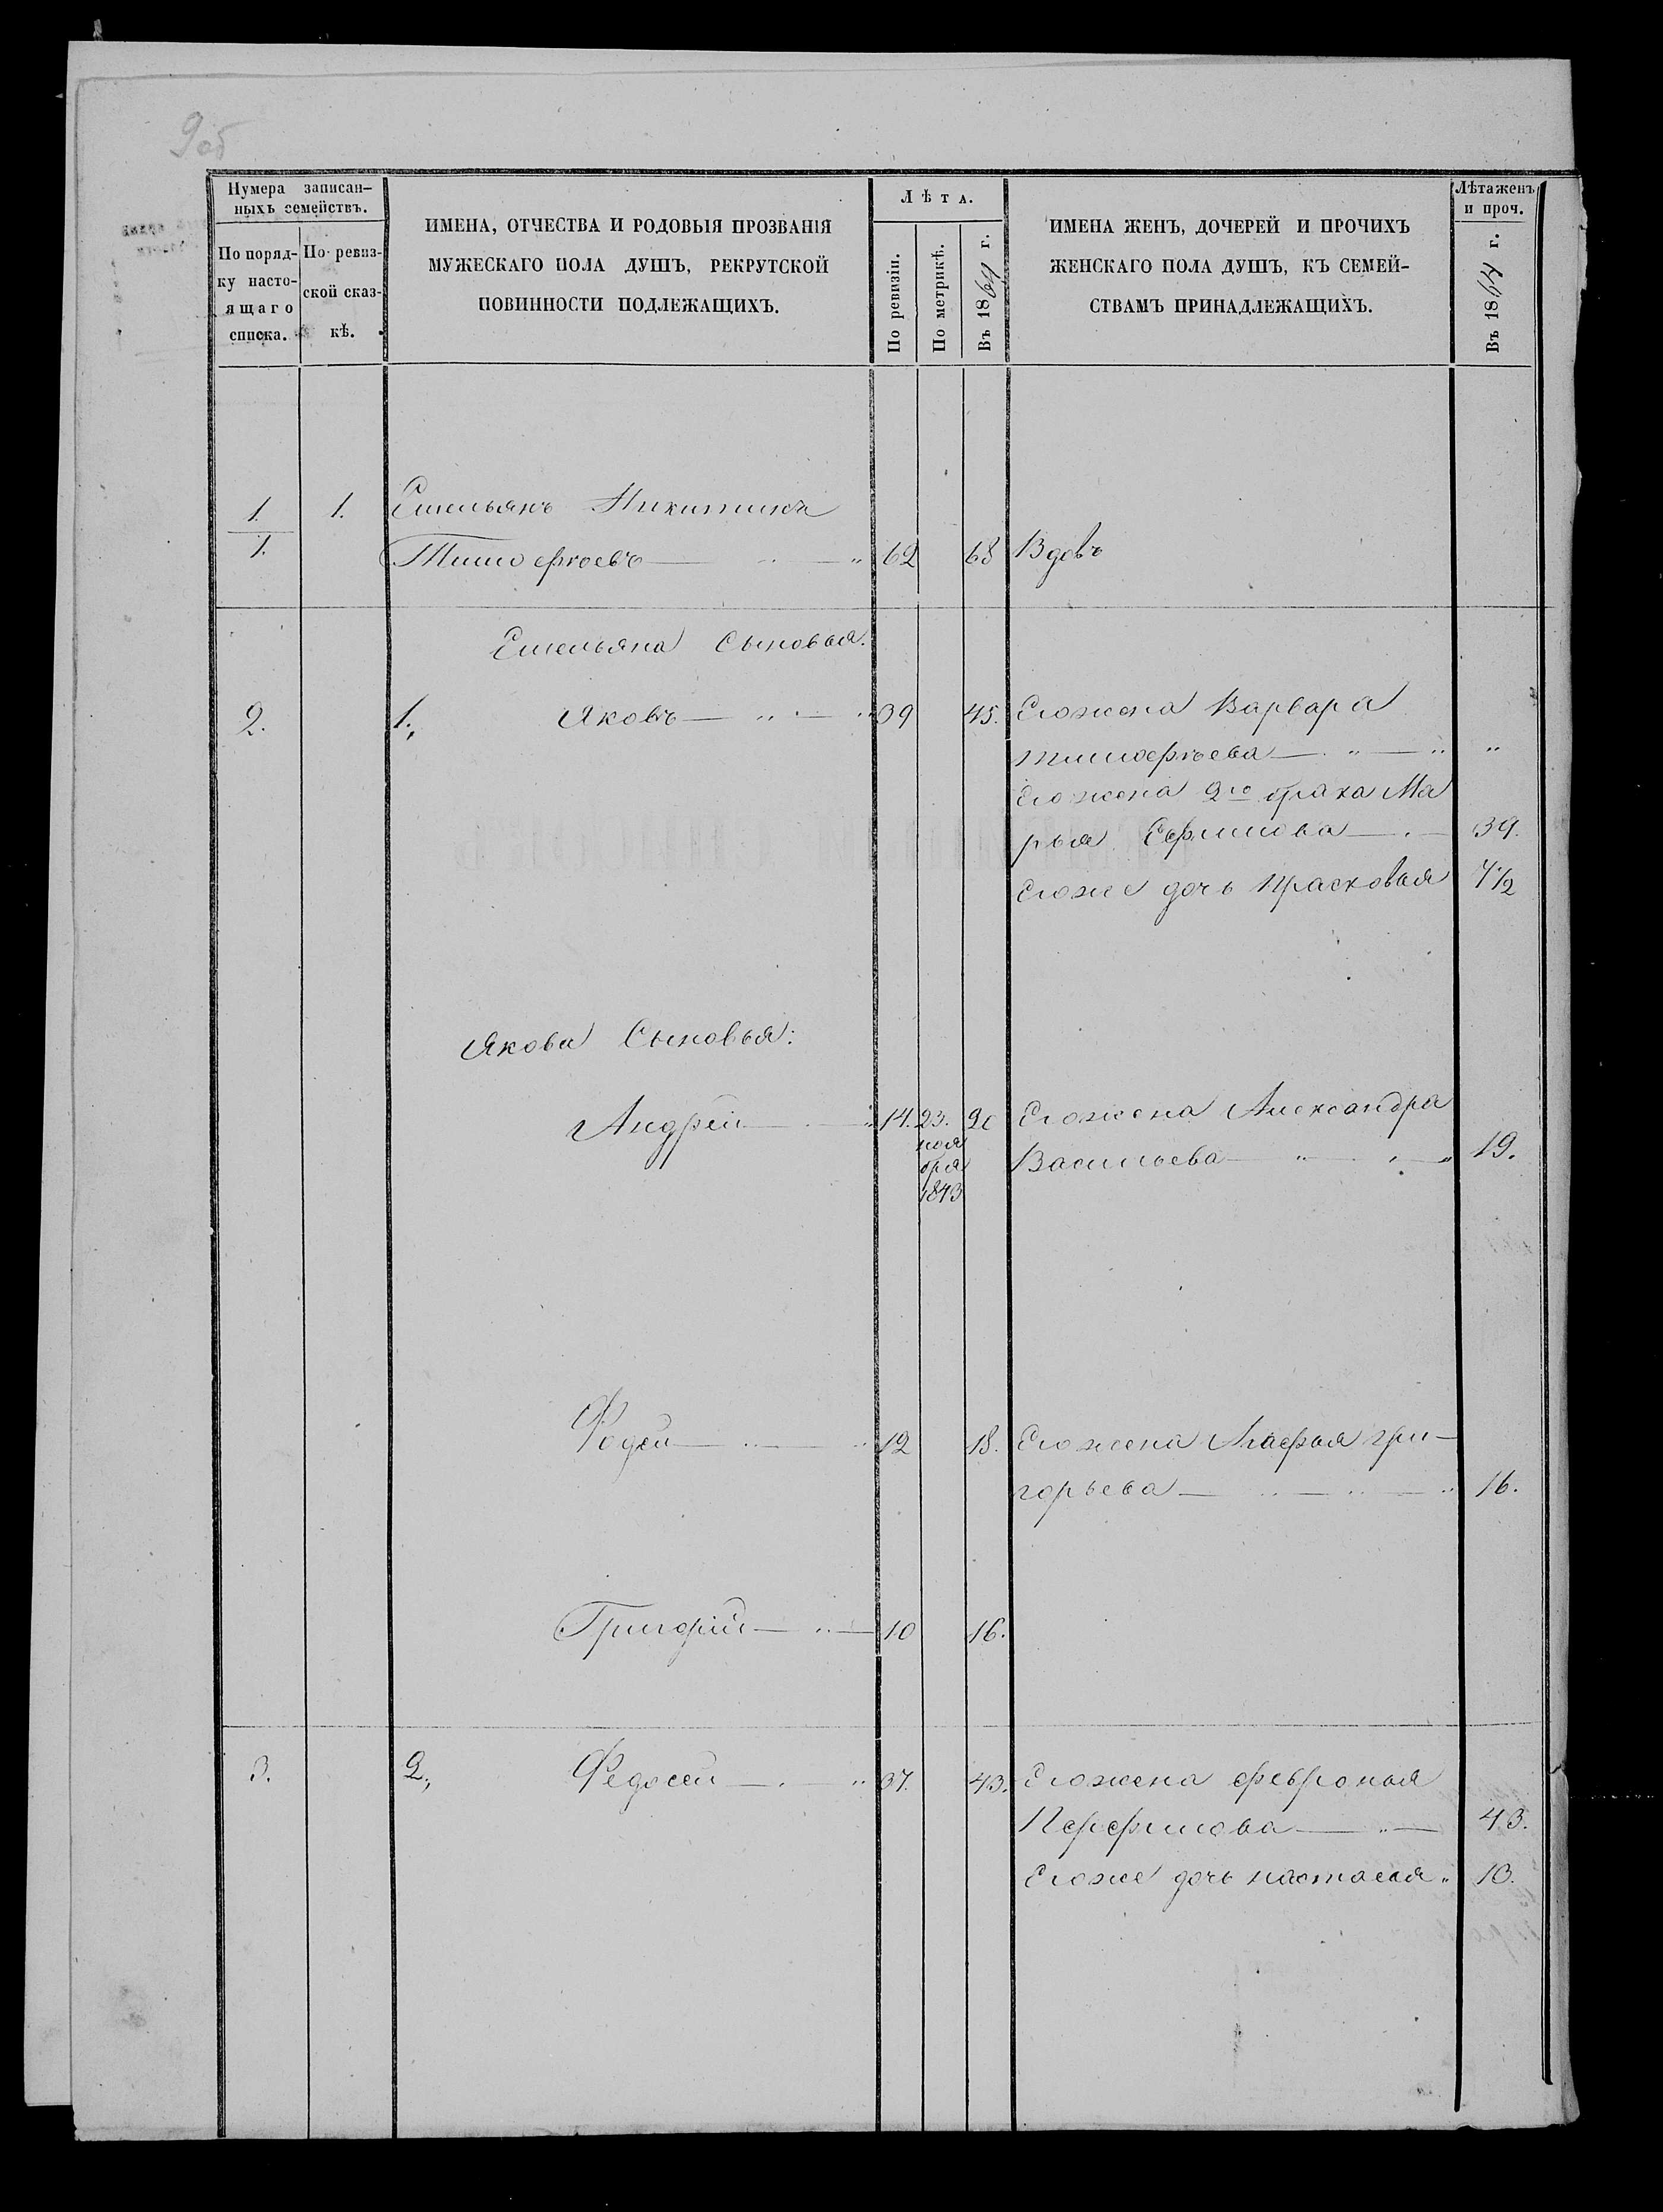 9об
Нумера записан-
ныхъ семействъ.
По поряд-
ку насто-
ящаго
списка.
По ревиз-
ской сказ-
кѣ.
ИМЕНА, ОТЧЕСТВА И РОДОВЫЯ ПРОЗВАНІЯ
МУЖЕСКАГО ПОЛА ДУШЪ, РЕКРУТСКОЙ
ПОВИННОСТИ ПОДЛЕЖАЩИХЪ.
Лѣта.
По ревизіи.
По метрикѣ.
Въ 1864 г.
ИМЕНА ЖЕНЪ, ДОЧЕРЕЙ И ПРОЧИХЪ
ЖЕНСКАГО ПОЛА ДУШЪ, КЪ СЕМЕЙ-
СТВАМЪ ПРИНАДЛЕЖАЩИХЪ.
Лѣта женъ
и проч.
Въ 1864 г.
1. 1. Емельянъ Никитинъ
1. Тимофѣевъ 62 68 Вдовъ
Емельяна Сыновья.
2. 1., Яковъ 39 45. Его жена Варвара
тимофѣева
Его жена 2го брака Ма
рья Ефимова 39.
Его же дочь Прасковья 7 1/2
Якова Сыновья:
Андрей 14. 23. 20 Его жена Александра
ноя
бря
1843
Васильева 19.
Фодей 12 18. Его жена Агафья гри-
горьева 16.
Григорій 10 16.
3. 2., Федосей 37. 43. Его жена февронья
Перфилова 43.
Его же дочь настасья 13.